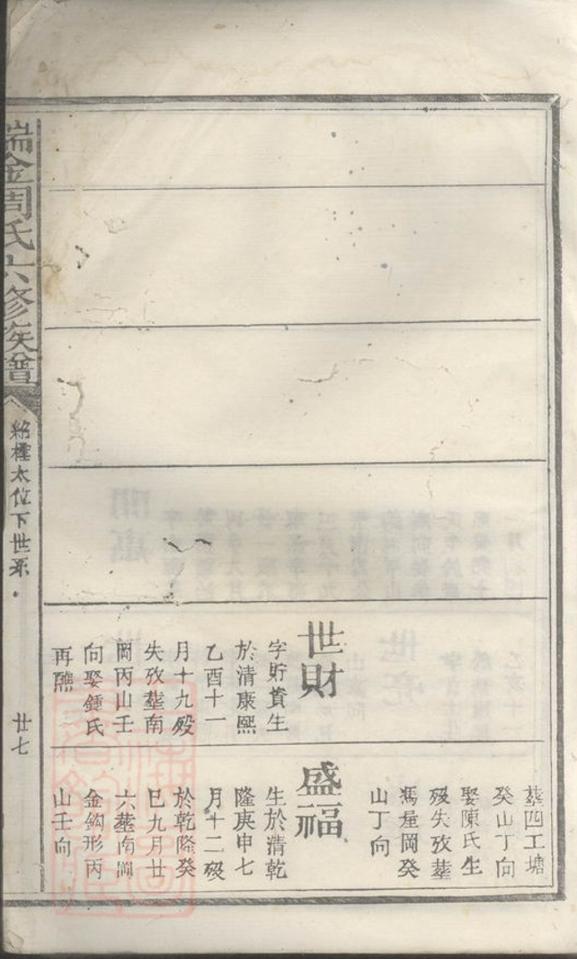 葬四工塘
癸山丁向
娶陳氏生
殁失攷葬
馮屋岡癸
山丁向
世財
字貯賁生
於清康熙
乙酉十一
月十九殁
失攷葬南
岡丙山壬
向娶鍾氏
再醮
盛福
生於清乾
隆庚申七
月十二殁
於乾隆癸
巳九月廿
六葬南岡
金鈎形丙
山壬向
瑞金周氏六修族譜
太位下世系
廿七